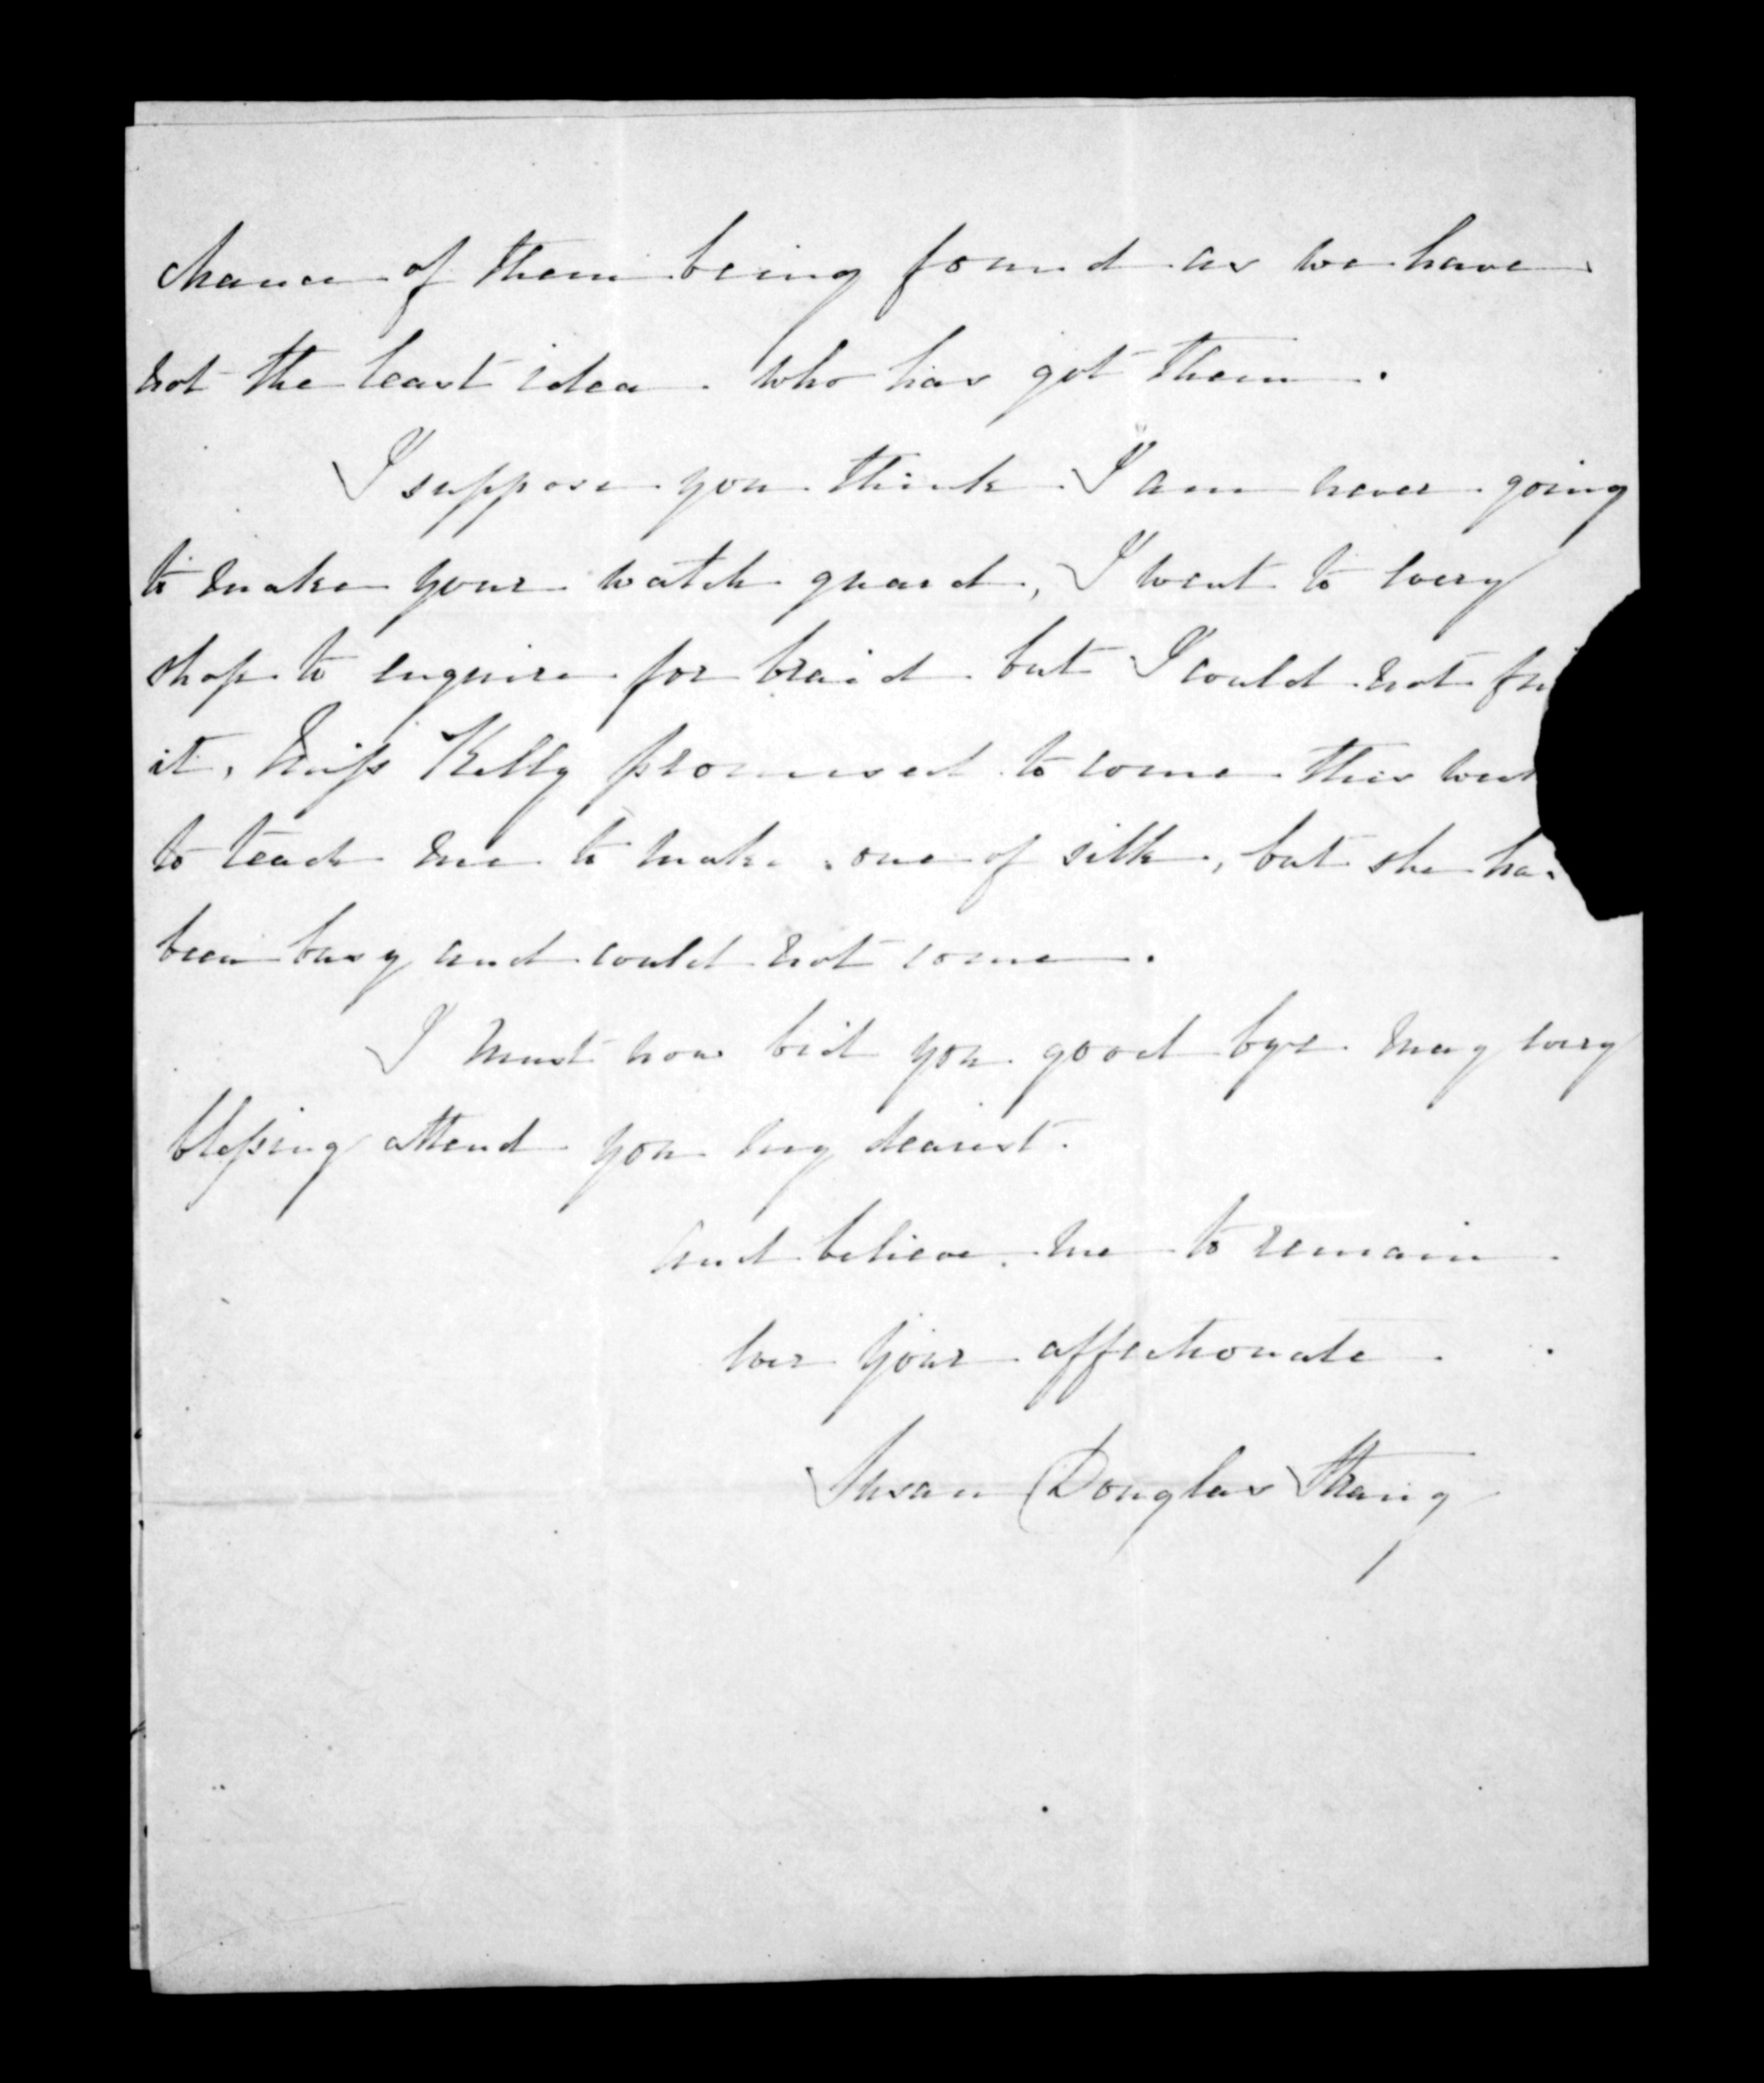 chance of them being found as we have
not the least idea who has got them.
I suppose you think I am never going
to make your watch guard, I went to every
shop to enquire for braid but I could not fi
it, Miss Kelly promised to come this week
to teach me to make one of silk, but she has
been busy and could not come.
I must now bid you good bye may every
blessing attend you my dearest.
And believe me to remain
ever your affectionate
Susan Douglas Strang